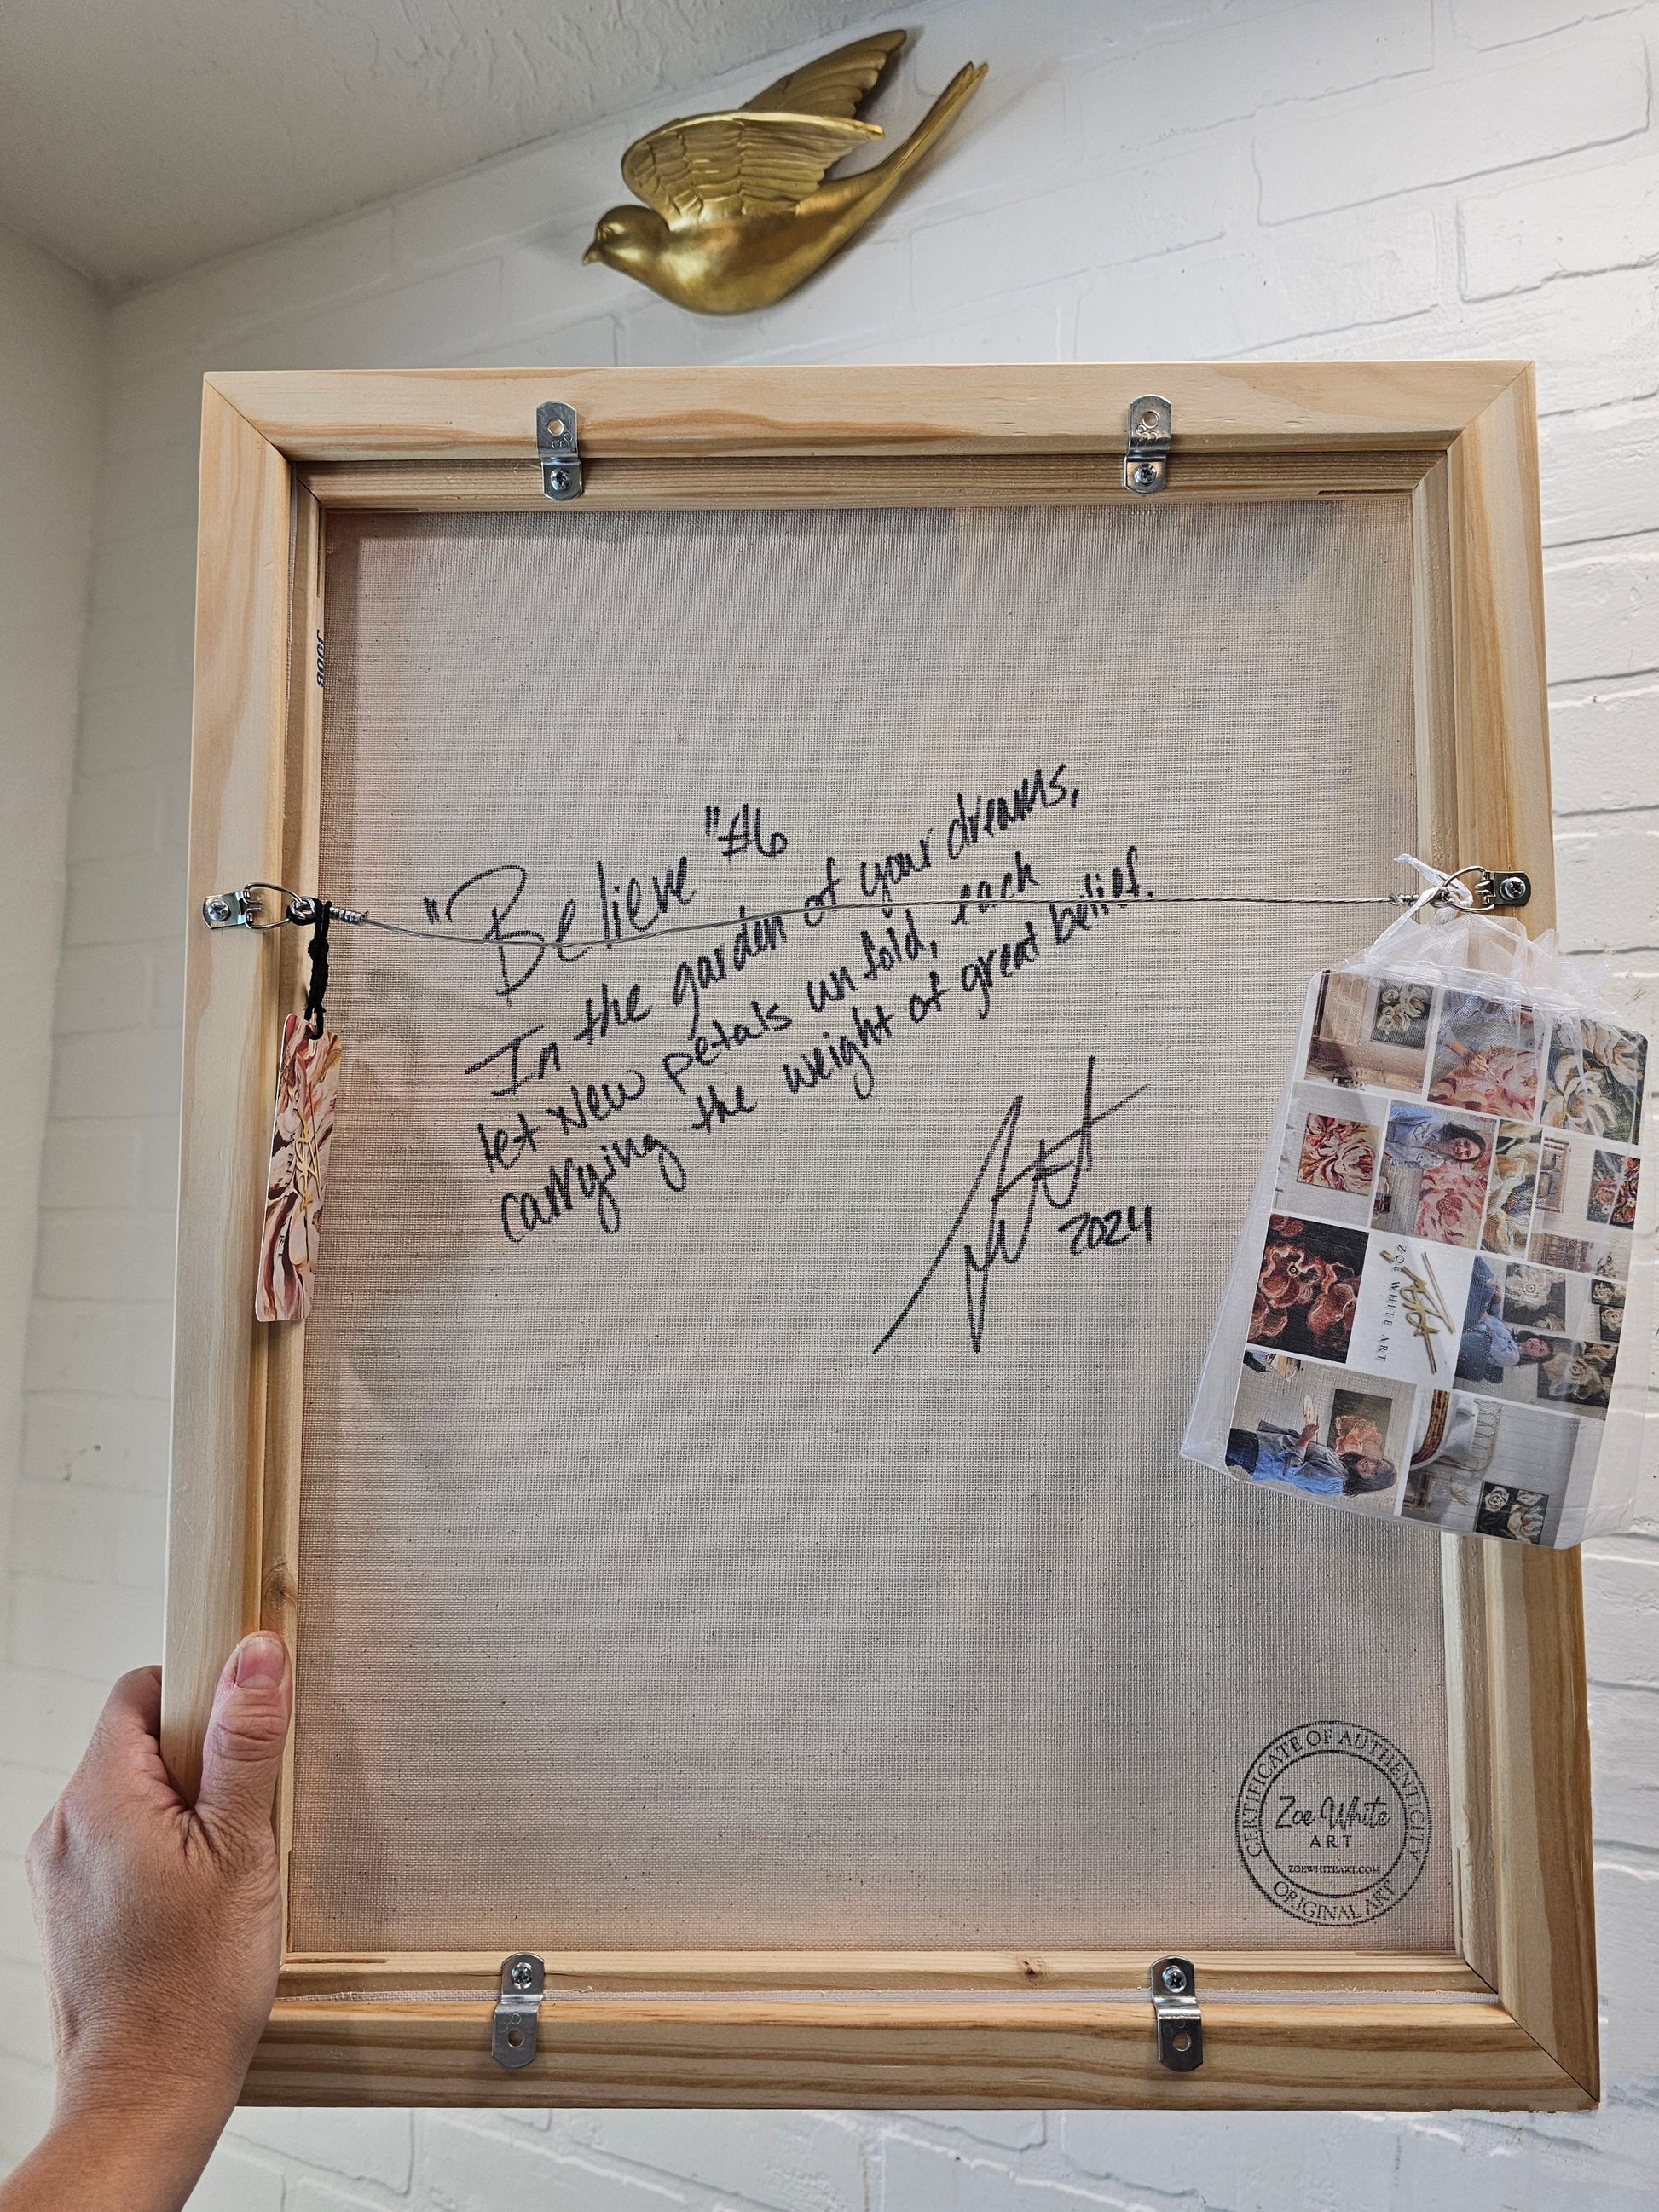 "Believe" #6
In the garden of your dreams,
let New petals unfold, each
carrying the weight of great belief.
2024
ZOE WHITE ART
CERTIFICATE OF AUTHENTICITY
Zoe White
ART
ZOEWHITEART.COM
ORIGINAL ART